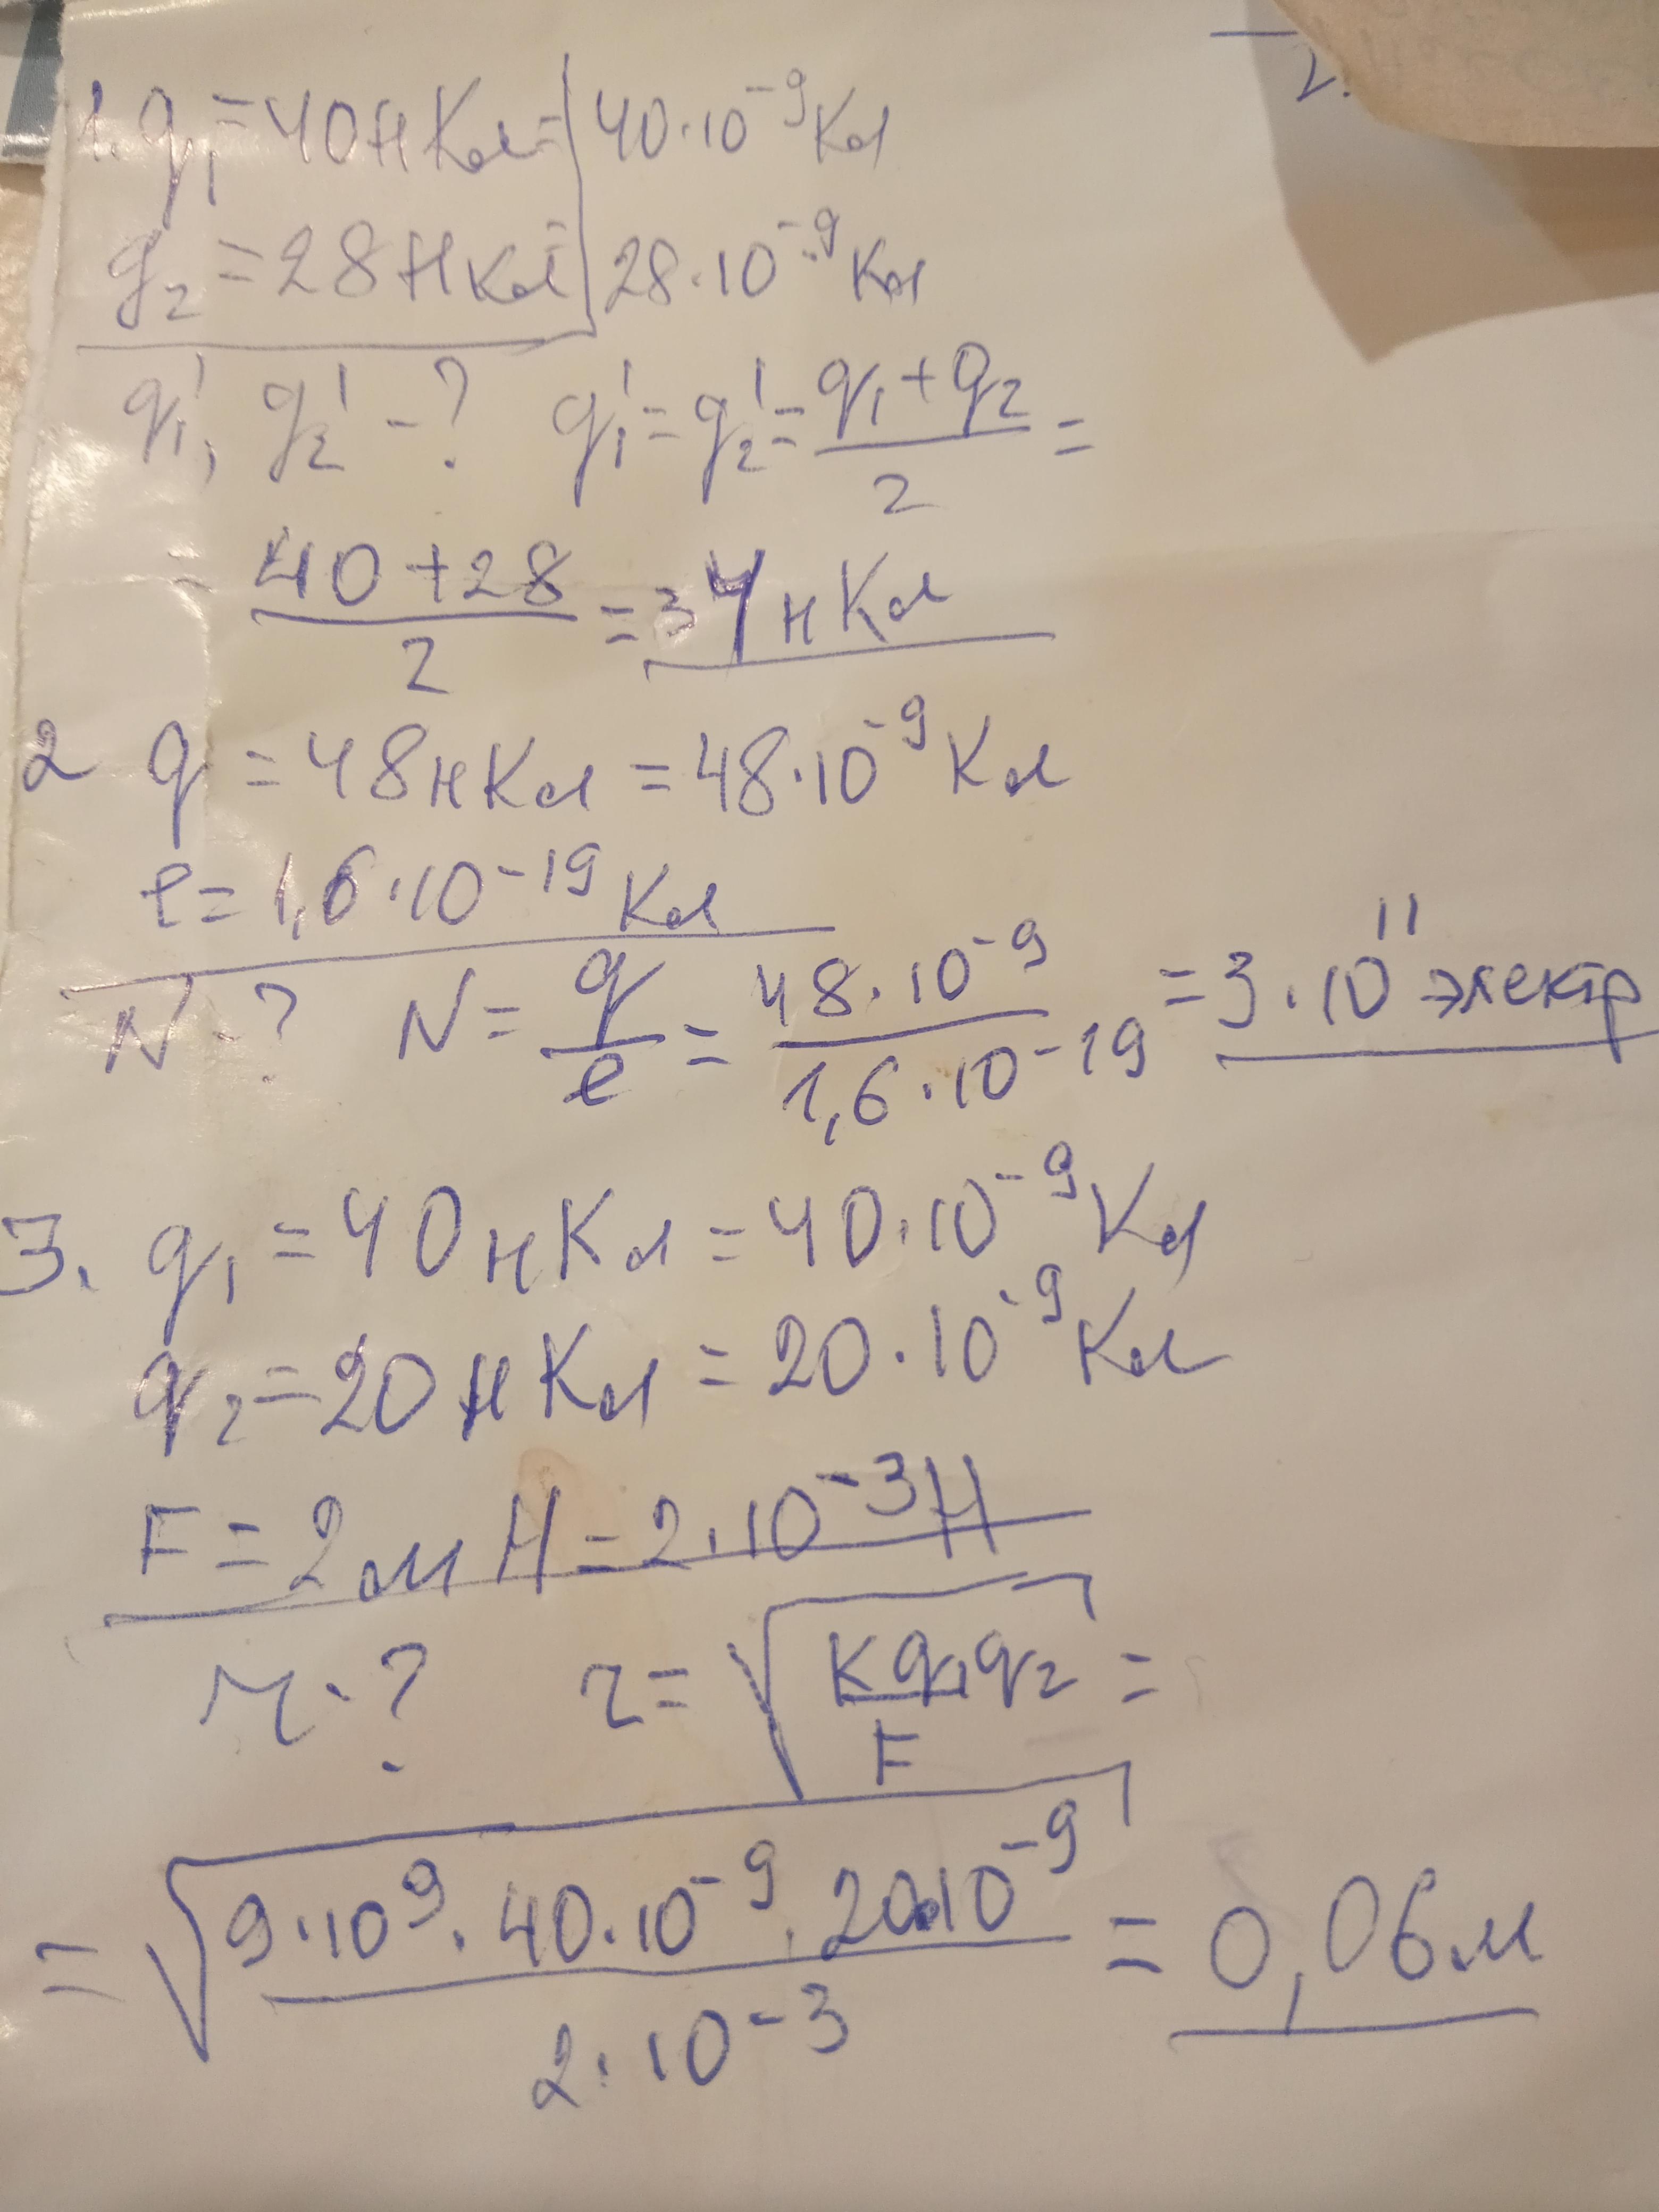 2.
1. q₁ = 40 нКл = | 40·10⁻⁹ Кл
q₂ = 28 нКл = | 28·10⁻⁹ Кл
q₁', q₂' - ? q₁' = q₂' = (q₁ + q₂)/2 =
= (40 + 28)/2 = 34 нКл
2 q = 48 нКл = 48·10⁻⁹ Кл
e = 1,6·10⁻¹⁹ Кл
N - ? N = q/e = (48·10⁻⁹)/(1,6·10⁻¹⁹) = 3·10¹¹ электр
3. q₁ = 40 нКл = 40·10⁻⁹ Кл
q₂ = 20 нКл = 20·10⁻⁹ Кл
F = 2 мН = 2·10⁻³ Н
r - ? r = √(kq₁q₂/F) =
= √((9·10⁹·40·10⁻⁹·20·10⁻⁹)/(2·10⁻³)) = 0,06 м